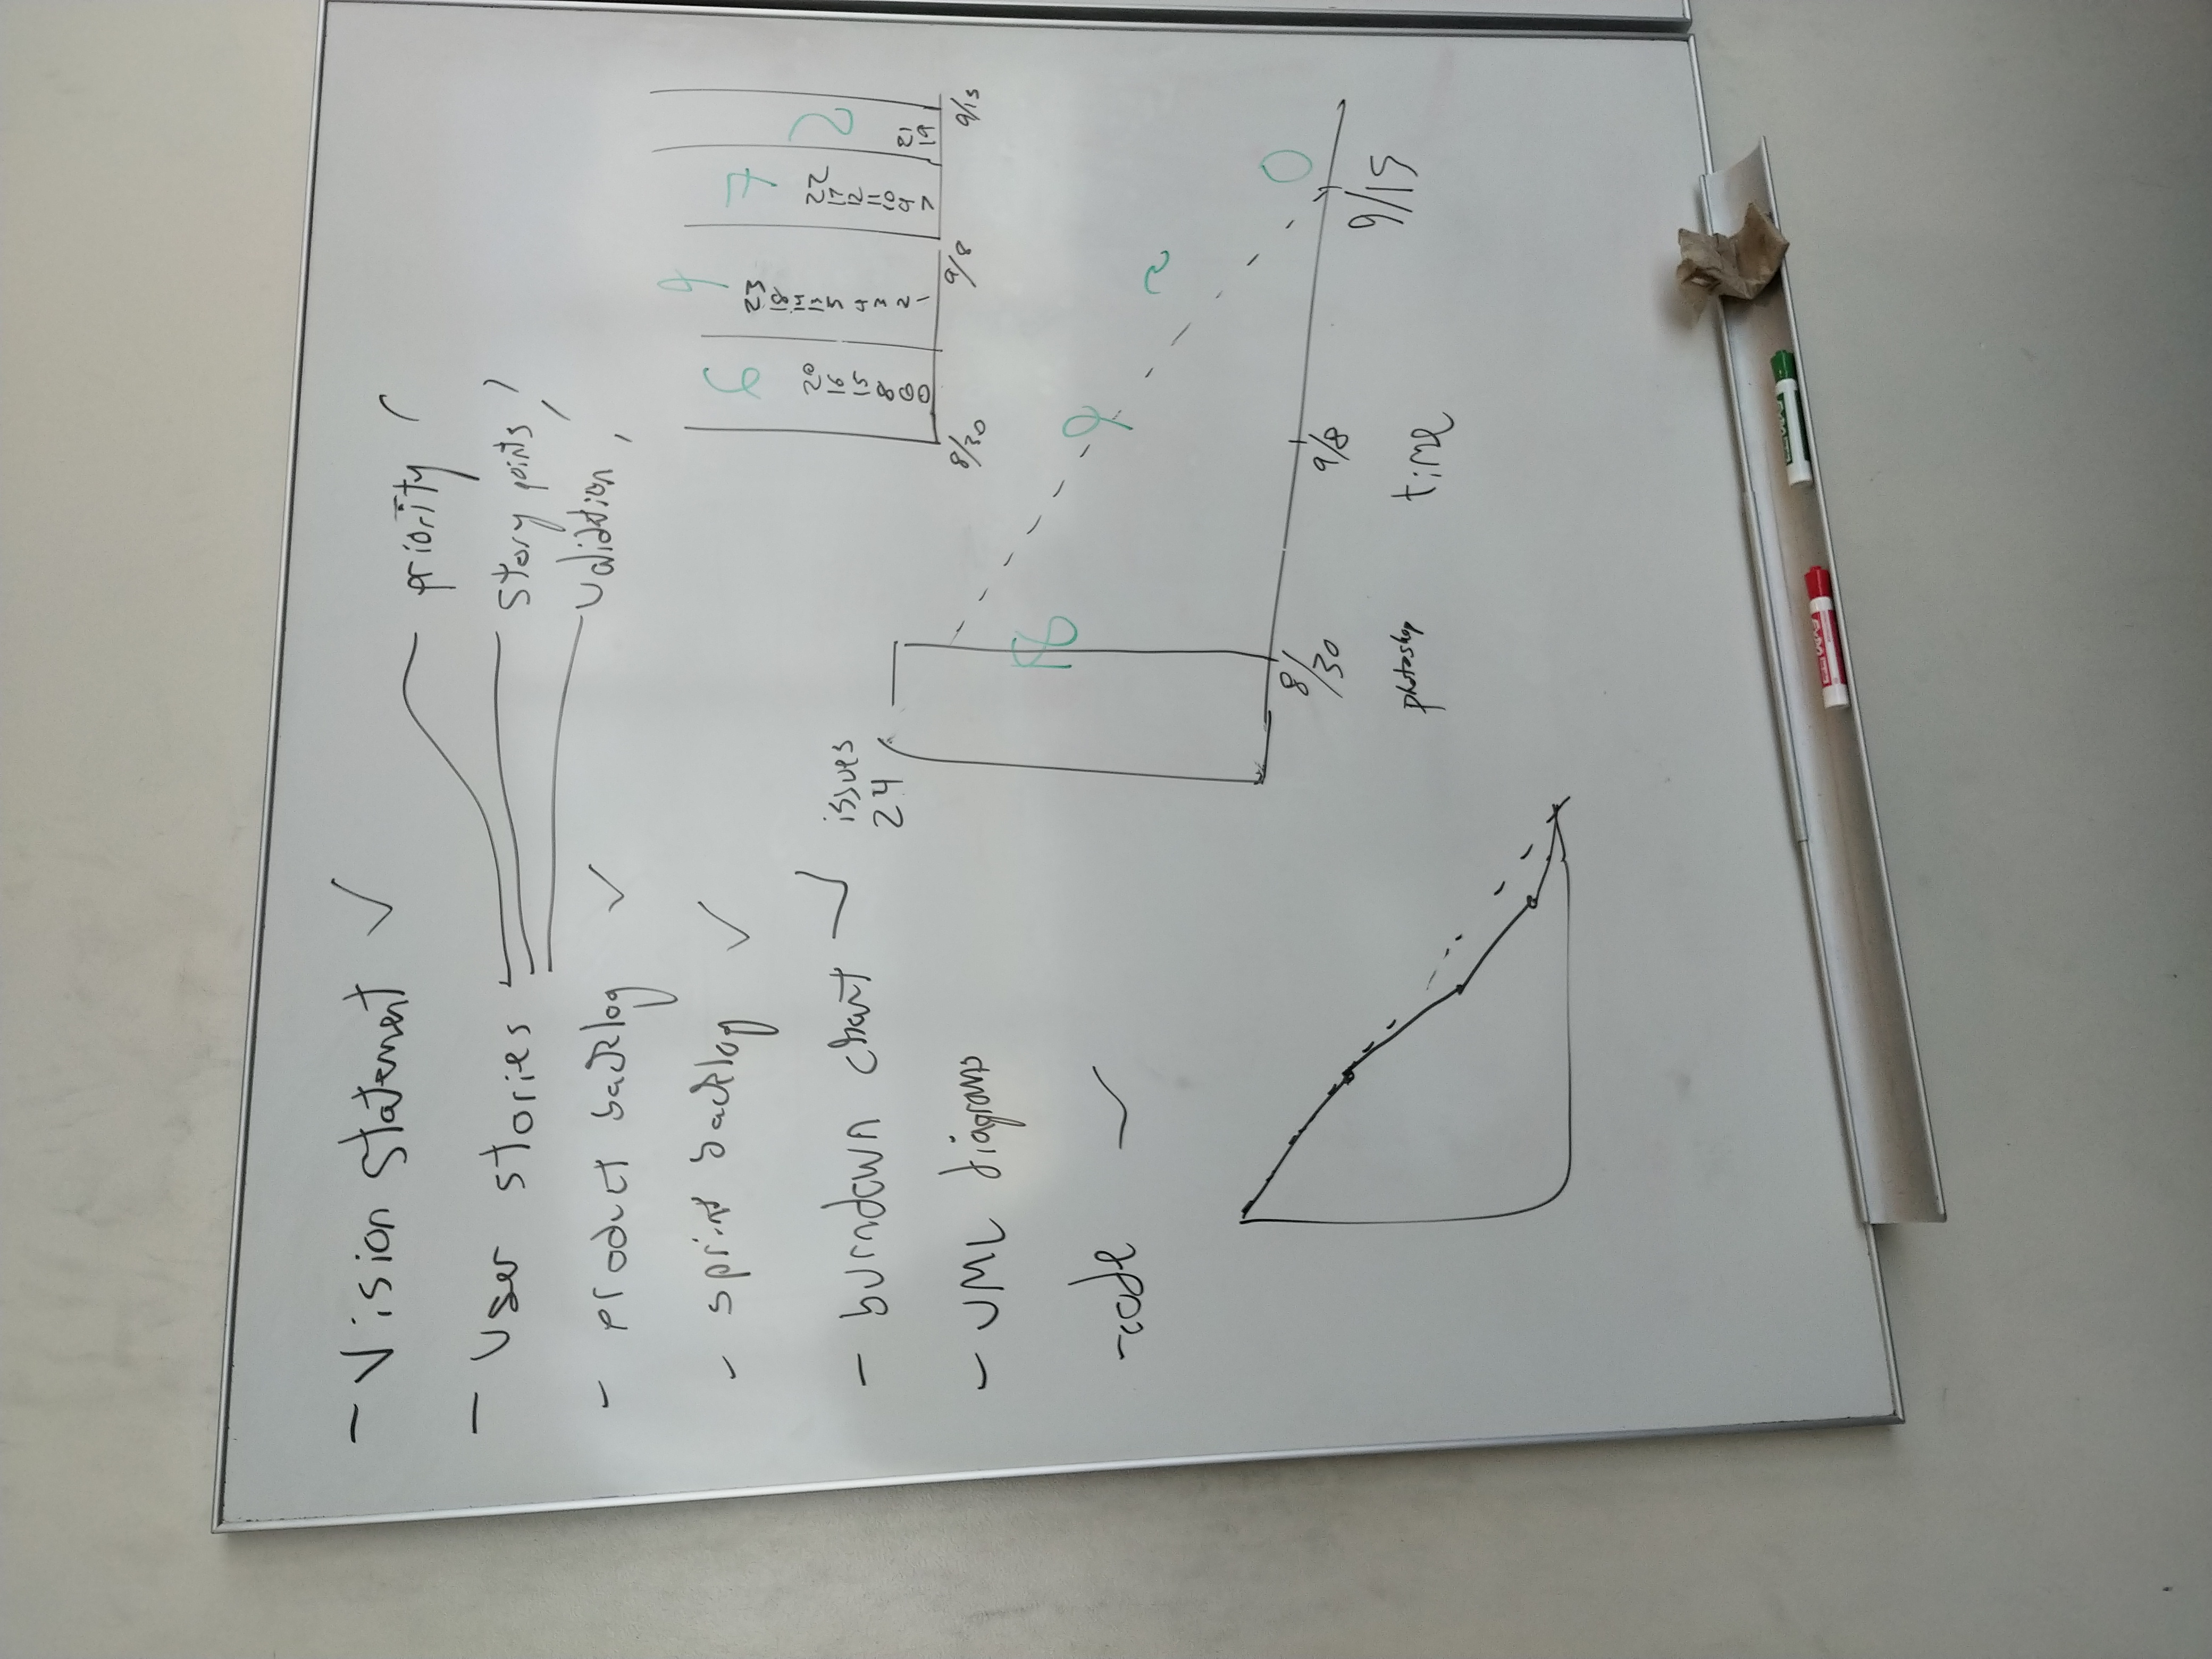 - Vision Statement ✓
- User stories
priority
story points
validation
- product backlog ✓
- sprint backlog ✓
- burndown chart ✓
- UML diagrams
- code ✓
6
20
16
15
8
6
0
9
23
18
5
4
3
2
1
7
22
17
12
11
10
9
7
2
21
19
8/30
9/8
9/15
issues
24
16
9
2
0
8/30
9/8
9/15
photoshop
time